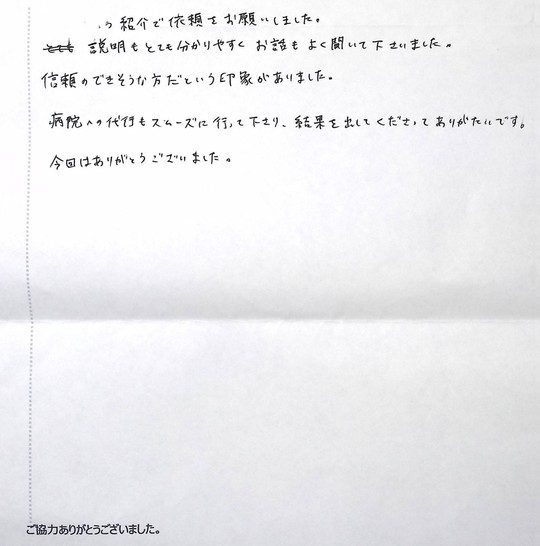 の紹介で依頼をお願いしました。
説明もとても分かりやすく お話もよく聞いて下さいました。
信頼のできそうな方だという印象がありました。
病院への代行もスムーズに行って下さり、結果を出してくださってありがたいです。
今回はありがとうございました。
ご協力ありがとうございました。